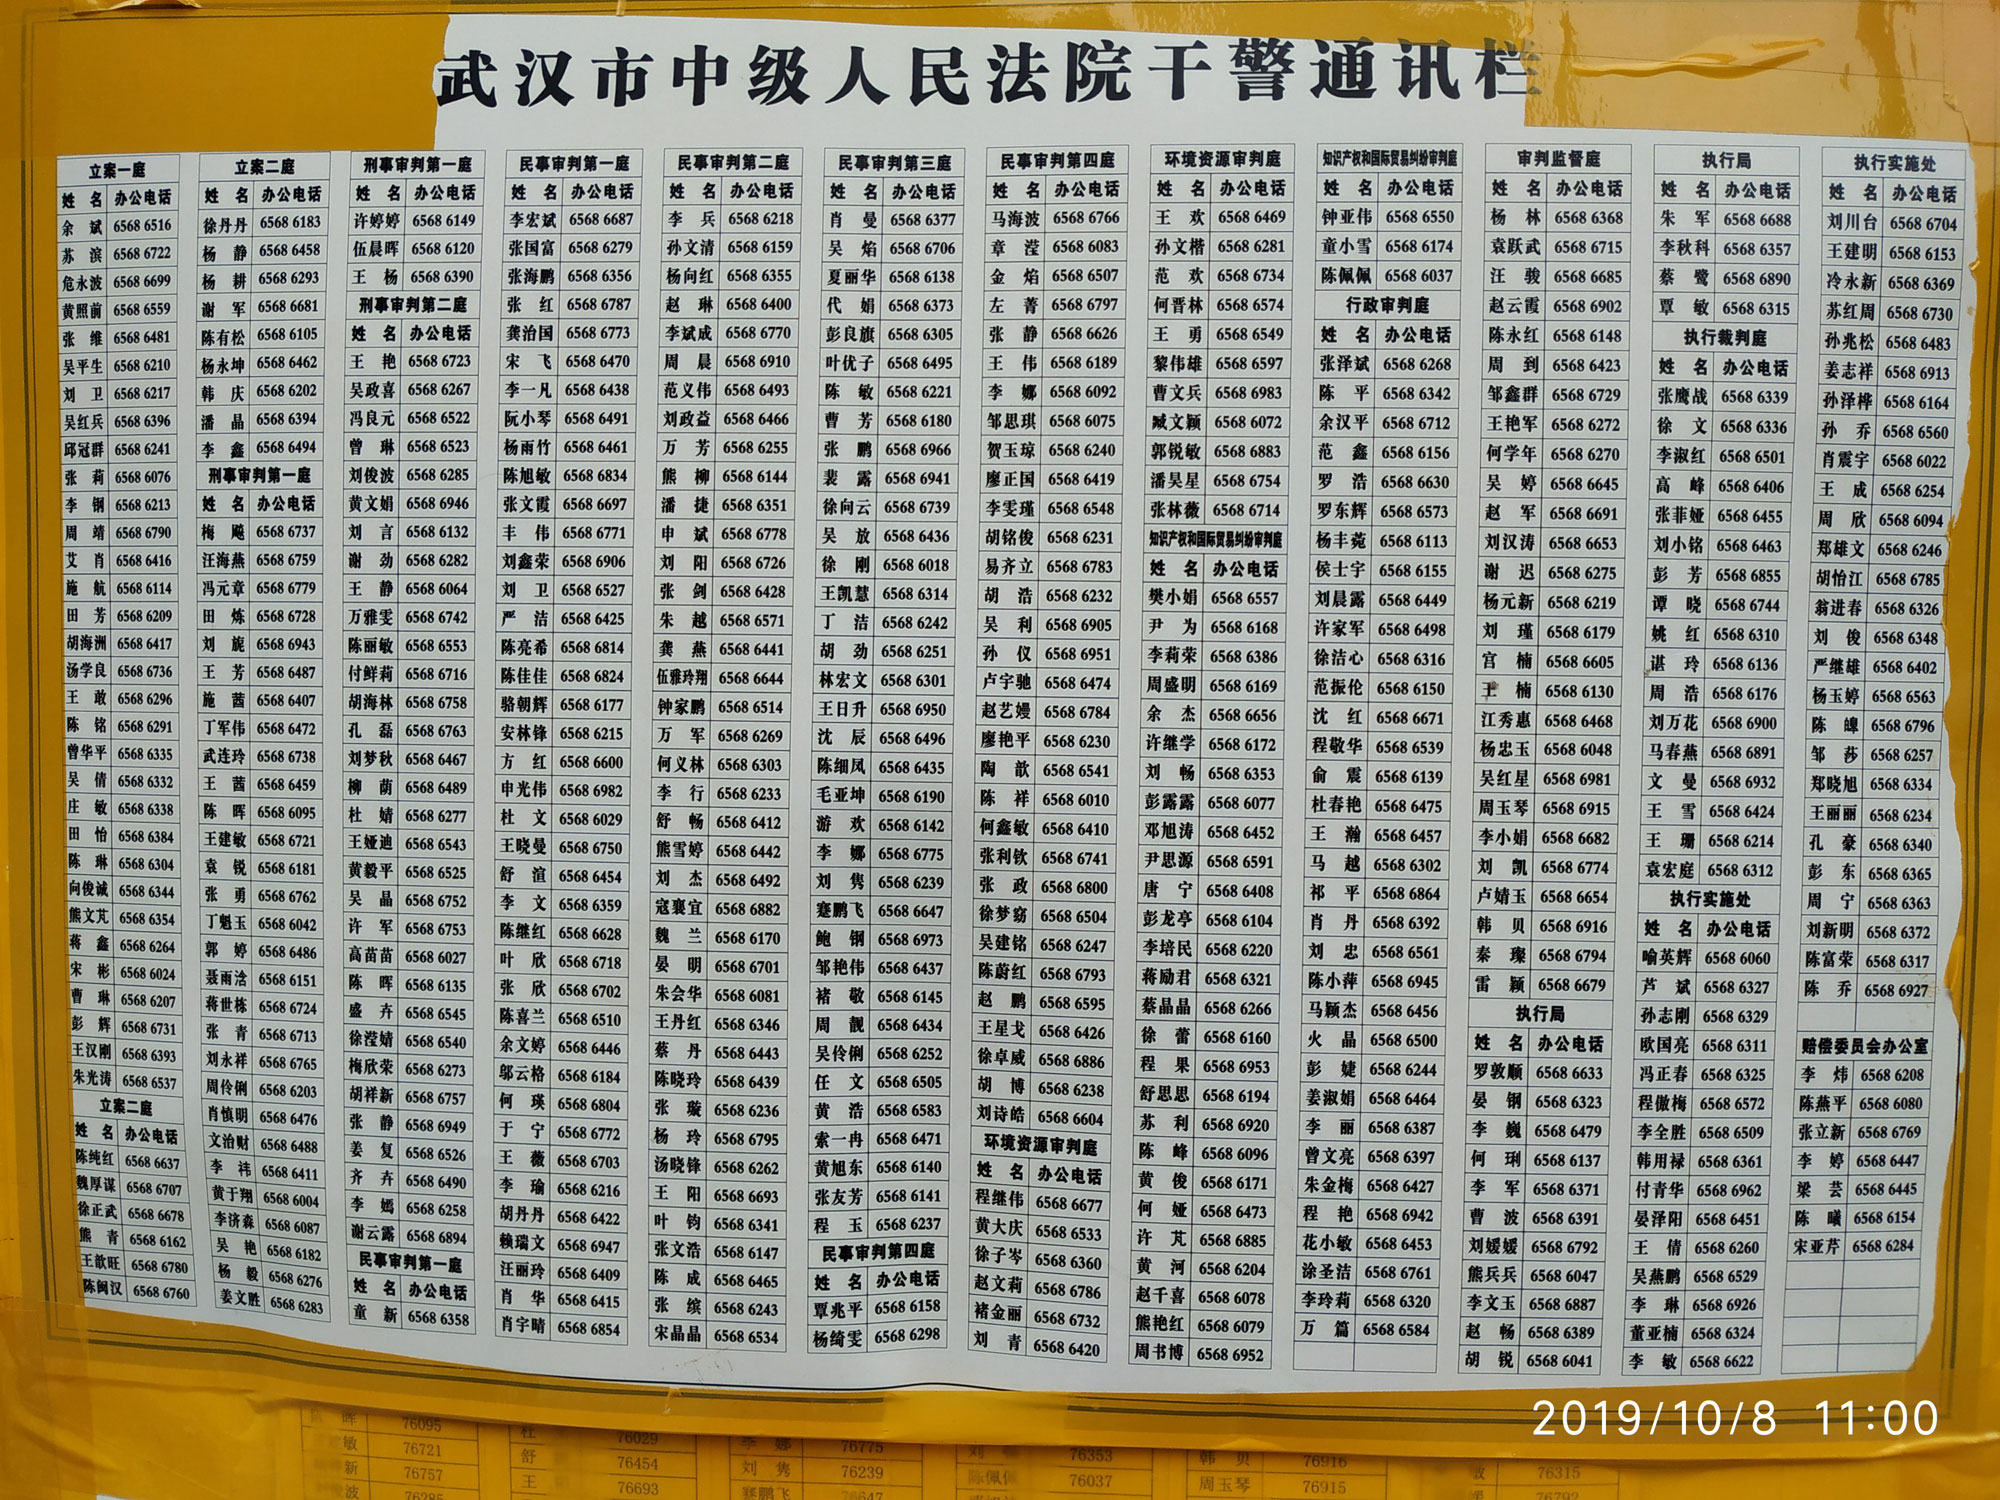 武汉市中级人民法院干警通讯栏
立案一庭
姓 名 办公电话
余 斌 6568 6516
苏 滨 6568 6722
危永波 6568 6699
黄照前 6568 6559
张 维 6568 6481
吴平生 6568 6210
刘 卫 6568 6217
吴红兵 6568 6396
邱冠群 6568 6241
张 莉 6568 6076
李 钢 6568 6213
周 靖 6568 6790
艾 肖 6568 6416
施 航 6568 6114
田 芳 6568 6209
胡海洲 6568 6417
汤学良 6568 6736
王 敢 6568 6296
陈 铭 6568 6291
曾华平 6568 6335
吴 倩 6568 6332
庄 敏 6568 6338
田 怡 6568 6384
陈 琳 6568 6304
向俊诚 6568 6344
熊文芃 6568 6354
蒋 鑫 6568 6264
宋 彬 6568 6024
曹 琳 6568 6207
彭 辉 6568 6731
王汉刚 6568 6393
朱光涛 6568 6537
立案二庭
姓 名 办公电话
陈纯红 6568 6637
魏厚谋 6568 6707
徐正武 6568 6678
熊 青 6568 6162
王歆旺 6568 6780
陈闽汉 6568 6760
立案二庭
姓 名 办公电话
徐丹丹 6568 6183
杨 静 6568 6458
杨 耕 6568 6293
谢 军 6568 6681
陈有松 6568 6105
杨永坤 6568 6462
韩 庆 6568 6202
潘 晶 6568 6394
李 鑫 6568 6494
刑事审判第一庭
姓 名 办公电话
梅 飚 6568 6737
汪海燕 6568 6759
冯元章 6568 6779
田 炼 6568 6728
刘 旎 6568 6943
王 芳 6568 6487
施 茜 6568 6407
丁军伟 6568 6472
武连玲 6568 6738
王 茜 6568 6459
陈 晖 6568 6095
王建敏 6568 6721
袁 锐 6568 6181
张 勇 6568 6762
丁魁玉 6568 6042
郭 婷 6568 6486
聂雨浛 6568 6151
蒋世栋 6568 6724
张 青 6568 6713
刘永祥 6568 6765
周伶俐 6568 6203
肖慎明 6568 6476
文治财 6568 6488
李 祎 6568 6411
黄于翔 6568 6004
李济森 6568 6087
吴 艳 6568 6182
杨 毅 6568 6276
姜文胜 6568 6283
刑事审判第一庭
姓 名 办公电话
许婷婷 6568 6149
伍晨晖 6568 6120
王 杨 6568 6390
刑事审判第二庭
姓 名 办公电话
王 艳 6568 6723
吴政喜 6568 6267
冯良元 6568 6522
曾 琳 6568 6523
刘俊波 6568 6285
黄文娟 6568 6946
刘 言 6568 6132
谢 劲 6568 6282
王 静 6568 6064
万雅雯 6568 6742
陈丽敏 6568 6553
付鲜莉 6568 6716
胡海林 6568 6758
孔 磊 6568 6763
刘梦秋 6568 6467
柳 荫 6568 6489
杜 婧 6568 6277
王娅迪 6568 6543
黄毅平 6568 6525
吴 晶 6568 6752
许 军 6568 6753
高苗苗 6568 6027
陈 晖 6568 6135
盛 卉 6568 6545
徐滢婧 6568 6540
梅欣荣 6568 6273
胡祥新 6568 6757
张 静 6568 6949
姜 复 6568 6526
齐 卉 6568 6490
李 嫣 6568 6258
谢云露 6568 6894
民事审判第一庭
姓 名 办公电话
童 新 6568 6358
民事审判第一庭
姓 名 办公电话
李宏斌 6568 6687
张国富 6568 6279
张海鹏 6568 6356
张 红 6568 6787
龚治国 6568 6773
宋 飞 6568 6470
李一凡 6568 6438
阮小琴 6568 6491
杨雨竹 6568 6461
陈旭敏 6568 6834
张文霞 6568 6697
丰 伟 6568 6771
刘鑫荣 6568 6906
刘 卫 6568 6527
严 洁 6568 6425
陈亮希 6568 6814
陈佳佳 6568 6824
骆朝辉 6568 6177
安林锋 6568 6215
方 红 6568 6600
申光伟 6568 6982
杜 文 6568 6029
王晓曼 6568 6750
舒 谊 6568 6454
李 文 6568 6359
陈继红 6568 6628
叶 欣 6568 6718
张 欣 6568 6702
陈喜兰 6568 6510
余文婷 6568 6446
邬云格 6568 6184
何 瑛 6568 6804
于 宁 6568 6772
王 薇 6568 6703
李 瑜 6568 6216
胡丹丹 6568 6422
赖瑞文 6568 6947
汪丽玲 6568 6409
肖 华 6568 6415
肖宇晴 6568 6854
民事审判第二庭
姓 名 办公电话
李 兵 6568 6218
孙文清 6568 6159
杨向红 6568 6355
赵 琳 6568 6400
李斌成 6568 6770
周 晨 6568 6910
范义伟 6568 6493
刘政益 6568 6466
万 芳 6568 6255
熊 柳 6568 6144
潘 捷 6568 6351
申 斌 6568 6778
刘 阳 6568 6726
张 剑 6568 6428
朱 越 6568 6571
龚 燕 6568 6441
伍雅玲翔 6568 6644
钟家鹏 6568 6514
万 军 6568 6269
何义林 6568 6303
李 行 6568 6233
舒 畅 6568 6412
熊雪婷 6568 6442
刘 杰 6568 6492
寇襄宜 6568 6882
魏 兰 6568 6170
晏 明 6568 6701
朱会华 6568 6081
王丹红 6568 6346
蔡 丹 6568 6443
陈晓玲 6568 6439
张 璇 6568 6236
杨 玲 6568 6795
汤晓锋 6568 6262
王 阳 6568 6693
叶 钧 6568 6341
张文浩 6568 6147
陈 成 6568 6465
张 缤 6568 6243
宋晶晶 6568 6534
民事审判第三庭
姓 名 办公电话
肖 曼 6568 6377
吴 焰 6568 6706
夏丽华 6568 6138
代 娟 6568 6373
彭良旗 6568 6305
叶优子 6568 6495
陈 敏 6568 6221
曹 芳 6568 6180
张 鹏 6568 6966
裴 露 6568 6941
徐向云 6568 6739
吴 放 6568 6436
徐 刚 6568 6018
王凯慧 6568 6314
丁 洁 6568 6242
胡 劲 6568 6251
林宏文 6568 6301
王日升 6568 6950
沈 辰 6568 6496
陈细凤 6568 6435
毛亚坤 6568 6190
游 欢 6568 6142
李 娜 6568 6775
刘 隽 6568 6239
蹇鹏飞 6568 6647
鲍 钢 6568 6973
邹艳伟 6568 6437
褚 敬 6568 6145
周 靓 6568 6434
吴伶俐 6568 6252
任 文 6568 6505
黄 浩 6568 6583
索一冉 6568 6471
黄旭东 6568 6140
张友芳 6568 6141
程 玉 6568 6237
民事审判第四庭
姓 名 办公电话
覃兆平 6568 6158
杨绮雯 6568 6298
民事审判第四庭
姓 名 办公电话
马海波 6568 6766
章 滢 6568 6083
金 焰 6568 6507
左 菁 6568 6797
张 静 6568 6626
王 伟 6568 6189
李 娜 6568 6092
邹思琪 6568 6075
贺玉琼 6568 6240
廖正国 6568 6419
李雯瑾 6568 6548
胡铭俊 6568 6231
易齐立 6568 6783
胡 浩 6568 6232
吴 利 6568 6905
孙 仪 6568 6951
卢宇驰 6568 6474
赵艺嫚 6568 6784
廖艳平 6568 6230
陶 歆 6568 6541
陈 祥 6568 6010
何鑫敏 6568 6410
张利钦 6568 6741
张 政 6568 6800
徐梦窈 6568 6504
吴建铭 6568 6247
陈蔚红 6568 6793
赵 鹏 6568 6595
王星戈 6568 6426
徐卓威 6568 6886
胡 博 6568 6238
刘诗皓 6568 6604
环境资源审判庭
姓 名 办公电话
程继伟 6568 6677
黄大庆 6568 6533
徐子岑 6568 6360
赵文莉 6568 6786
褚金丽 6568 6732
刘 青 6568 6420
环境资源审判庭
姓 名 办公电话
王 欢 6568 6469
孙文楷 6568 6281
范 欢 6568 6734
何晋林 6568 6574
王 勇 6568 6549
黎伟雄 6568 6597
曹文兵 6568 6983
臧文颖 6568 6072
郭锐敏 6568 6883
潘昊星 6568 6754
张林薇 6568 6714
知识产权和国际贸易纠纷审判庭
姓 名 办公电话
樊小娟 6568 6557
尹 为 6568 6168
李莉荣 6568 6386
周盛明 6568 6169
余 杰 6568 6656
许继学 6568 6172
刘 畅 6568 6353
彭露露 6568 6077
邓旭涛 6568 6452
尹思源 6568 6591
唐 宁 6568 6408
彭龙亭 6568 6104
李培民 6568 6220
蒋励君 6568 6321
蔡晶晶 6568 6266
徐 蕾 6568 6160
程 果 6568 6953
舒思思 6568 6194
苏 利 6568 6920
陈 峰 6568 6096
黄 俊 6568 6171
何 娅 6568 6473
许 芃 6568 6885
黄 河 6568 6204
赵千喜 6568 6078
熊艳红 6568 6079
周书博 6568 6952
知识产权和国际贸易纠纷审判庭
姓 名 办公电话
钟亚伟 6568 6550
童小雪 6568 6174
陈佩佩 6568 6037
行政审判庭
姓 名 办公电话
张泽斌 6568 6268
陈 平 6568 6342
余汉平 6568 6712
范 鑫 6568 6156
罗 浩 6568 6630
罗东辉 6568 6573
杨丰菀 6568 6113
侯士宇 6568 6155
刘晨露 6568 6449
许家军 6568 6498
徐洁心 6568 6316
范振伦 6568 6150
沈 红 6568 6671
程敬华 6568 6539
俞 震 6568 6139
杜春艳 6568 6475
王 瀚 6568 6457
马 越 6568 6302
祁 平 6568 6864
肖 丹 6568 6392
刘 忠 6568 6561
陈小萍 6568 6945
马颖杰 6568 6456
火 晶 6568 6500
彭 婕 6568 6244
姜淑娟 6568 6464
李 丽 6568 6387
曾文亮 6568 6397
朱金梅 6568 6427
程 艳 6568 6942
花小敏 6568 6453
涂圣洁 6568 6761
李玲莉 6568 6320
万 篇 6568 6584
审判监督庭
姓 名 办公电话
杨 林 6568 6368
袁跃武 6568 6715
汪 骏 6568 6685
赵云霞 6568 6902
陈永红 6568 6148
周 到 6568 6423
邹鑫群 6568 6729
王艳军 6568 6272
何学年 6568 6270
吴 婷 6568 6645
赵 军 6568 6691
刘汉涛 6568 6653
谢 迟 6568 6275
杨元新 6568 6219
刘 瑾 6568 6179
宫 楠 6568 6605
王 楠 6568 6130
江秀惠 6568 6468
杨忠玉 6568 6048
吴红星 6568 6981
周玉琴 6568 6915
李小娟 6568 6682
刘 凯 6568 6774
卢婧玉 6568 6654
韩 贝 6568 6916
秦 璨 6568 6794
雷 颖 6568 6679
执行局
姓 名 办公电话
罗敦顺 6568 6633
晏 钢 6568 6323
李 巍 6568 6479
何 琍 6568 6137
李 军 6568 6371
曹 波 6568 6391
刘媛媛 6568 6792
熊兵兵 6568 6047
李文玉 6568 6887
赵 畅 6568 6389
胡 锐 6568 6041
执行局
姓 名 办公电话
朱 军 6568 6688
李秋科 6568 6357
蔡 鹭 6568 6890
覃 敏 6568 6315
执行裁判庭
姓 名 办公电话
张鹰战 6568 6339
徐 文 6568 6336
李淑红 6568 6501
高 峰 6568 6406
张菲娅 6568 6455
刘小铭 6568 6463
彭 芳 6568 6855
谭 晓 6568 6744
姚 红 6568 6310
谌 玲 6568 6136
周 浩 6568 6176
刘万花 6568 6900
马春燕 6568 6891
文 曼 6568 6932
王 雪 6568 6424
王 珊 6568 6214
袁宏庭 6568 6312
执行实施处
姓 名 办公电话
喻英辉 6568 6060
芦 斌 6568 6327
孙志刚 6568 6329
欧国亮 6568 6311
冯正春 6568 6325
程傲梅 6568 6572
李全胜 6568 6509
韩用禄 6568 6361
付青华 6568 6962
晏泽阳 6568 6451
王 倩 6568 6260
吴燕鹏 6568 6529
李 琳 6568 6926
董亚楠 6568 6324
李 敏 6568 6622
执行实施处
姓 名 办公电话
刘川台 6568 6704
王建明 6568 6153
冷永新 6568 6369
苏红周 6568 6730
孙兆松 6568 6483
姜志祥 6568 6913
孙泽桦 6568 6164
孙 乔 6568 6560
肖震宇 6568 6022
王 成 6568 6254
周 欣 6568 6094
郑雄文 6568 6246
胡怡江 6568 6785
翁进春 6568 6326
刘 俊 6568 6348
严继雄 6568 6402
杨玉婷 6568 6563
陈 皞 6568 6796
邹 莎 6568 6257
郑晓旭 6568 6334
王丽丽 6568 6234
孔 豪 6568 6340
彭 东 6568 6365
周 宁 6568 6363
刘新明 6568 6372
陈富荣 6568 6317
陈 乔 6568 6927
赔偿委员会办公室
李 炜 6568 6208
陈燕平 6568 6080
张立新 6568 6769
李 婷 6568 6447
梁 芸 6568 6445
陈 曦 6568 6154
宋亚芹 6568 6284
2019/10/8 11:00
晖 76095
敏 76721
新 76757
波 76285
杜 76029
舒 76454
王 76693
李 娜 76775
刘 隽 76239
蹇鹏飞 76647
刘 76353
陈佩佩 76037
韩 贝 76916
周玉琴 76915
76315
76792